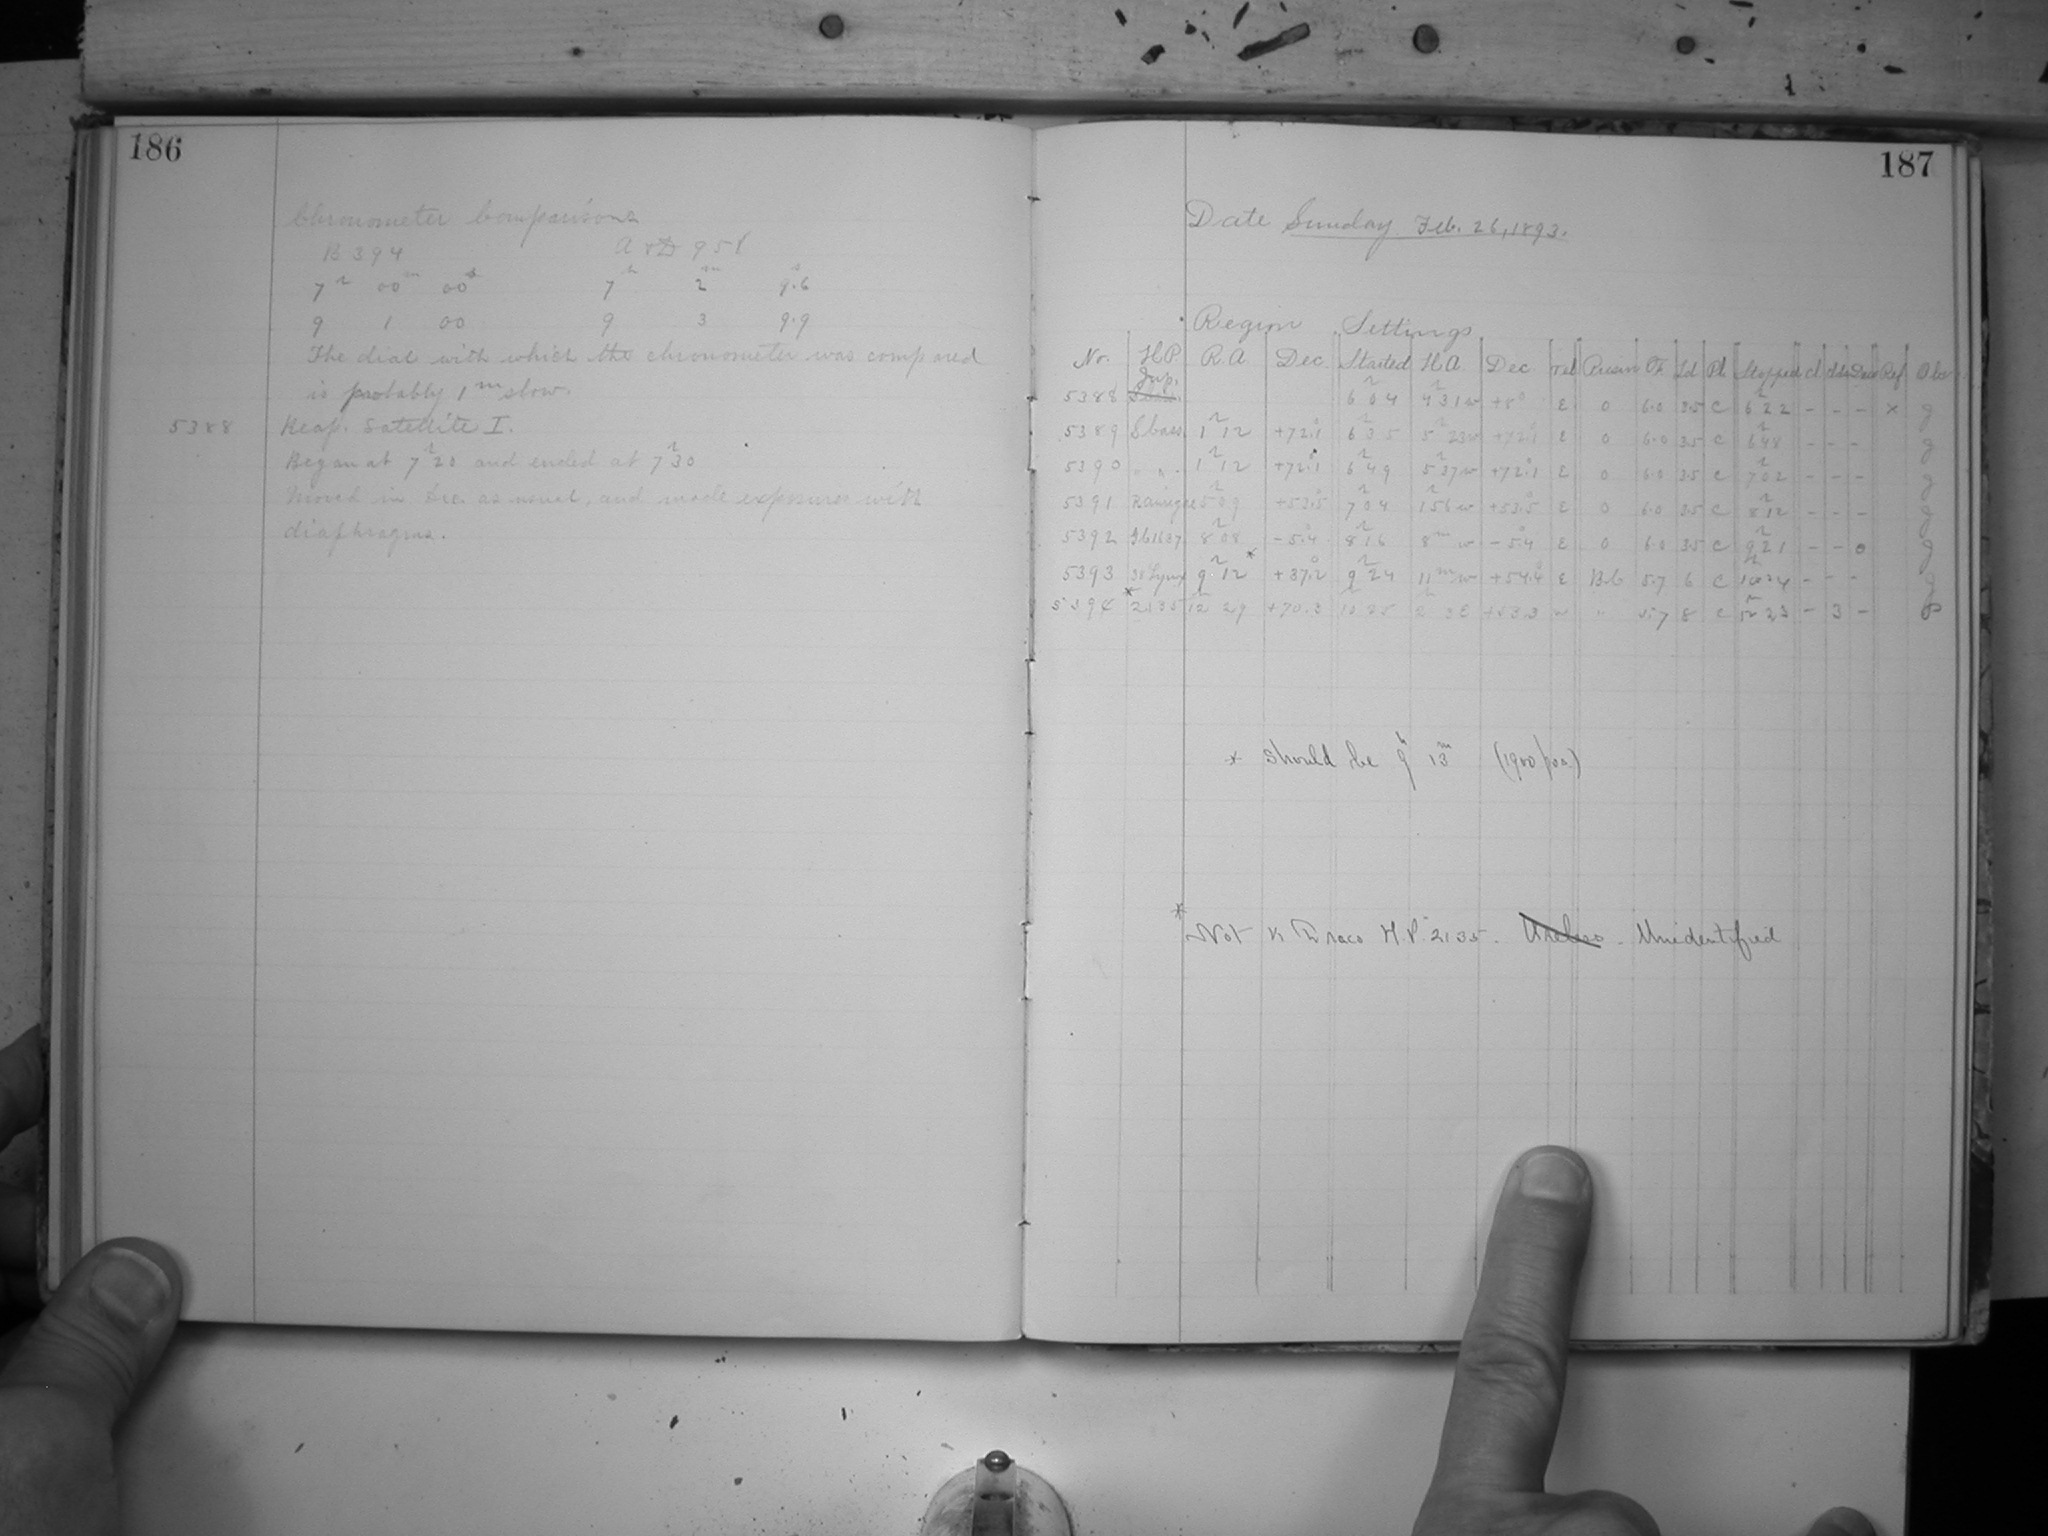 186
Chronometer Comparisons
B 394 A & D 958
7h 00m 00s 7h 2m 9.6s
9 1 00 9 3 9.9
The dial with which the chronometer was compared
is probably 1m slow.
5388 Reap. Satellite I.
Began at 7h20 and ended at 7h30
Moved in Dec. as usual, and made exposures with
diaphragm.
187
Date Sunday Feb. 26, 1893.
Region Settings
No. H.P. R.A. Dec. Started H.A. Dec. Tel Prism Ft Sd Pl Stopped cl Ref Obs
5388 Jup. 6h04 4h31w +8° E 0 6.0 3.5 C 6h22 - - - x g
5389 S Cass. 1h12 +72.1° 6h35 5h23w +72.1° E 0 6.0 3.5 C 6h48 - - - g
5390 " " 1h12 +72.1° 6h49 5h37w +72.1° E 0 6.0 3.5 C 7h02 - - - g
5391 5h09 +53.5° 7h04 1h56w +53.5° E 0 6.0 3.5 C 8h12 - - - g
5392 8h08 -5.4° 8h16 8m w -5.4° E 0 6.0 3.5 C 9h21 - - 0 g
5393 38 Lyncis 9h12* +37.2° 9h24 11m w +54.4° E B.6 5.7 6 C 10h24 - - - g
5394 *2135 12h29 +70.3 10h35 2h3E +53.3 w " 5.7 8 C 12h23 - 3 -
* Should be 9h 13m (1900 pos.)
* Not K Draco H.P. 2135. Useless. Unidentified